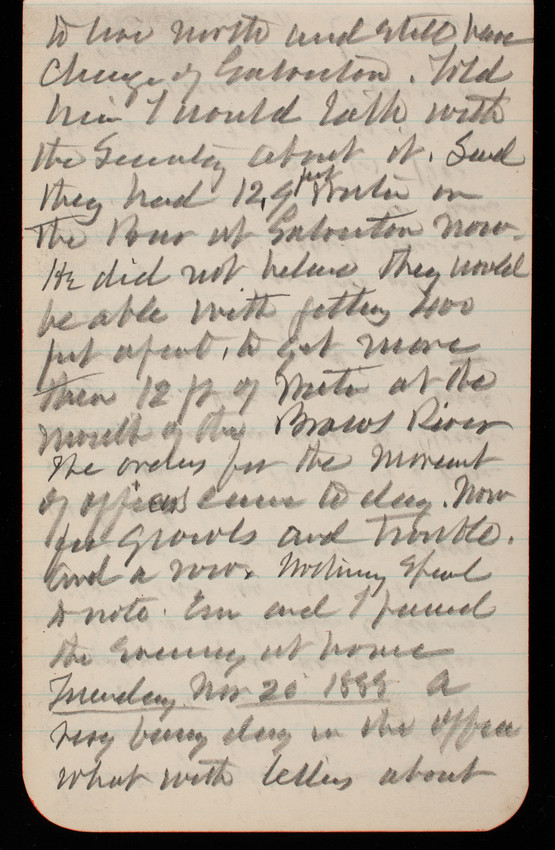 to live north and still have
charge of Galveston. Told
him I would talk with
the Secretary about it. Said
they had 12.9 feet water on
the Bar at Galveston now.
He did not believe they would
be able with jetties 400
feet apart, to get more
than 12 ft of water at the
mouth of the Brasos River
The orders for the movement
of officers came to day. Now
for growls and trouble.
and a row. Nothing
to note. Em and I passed
the Evening at home
Tuesday Nov 20 1888 A
very busy day in the office
what with letters about